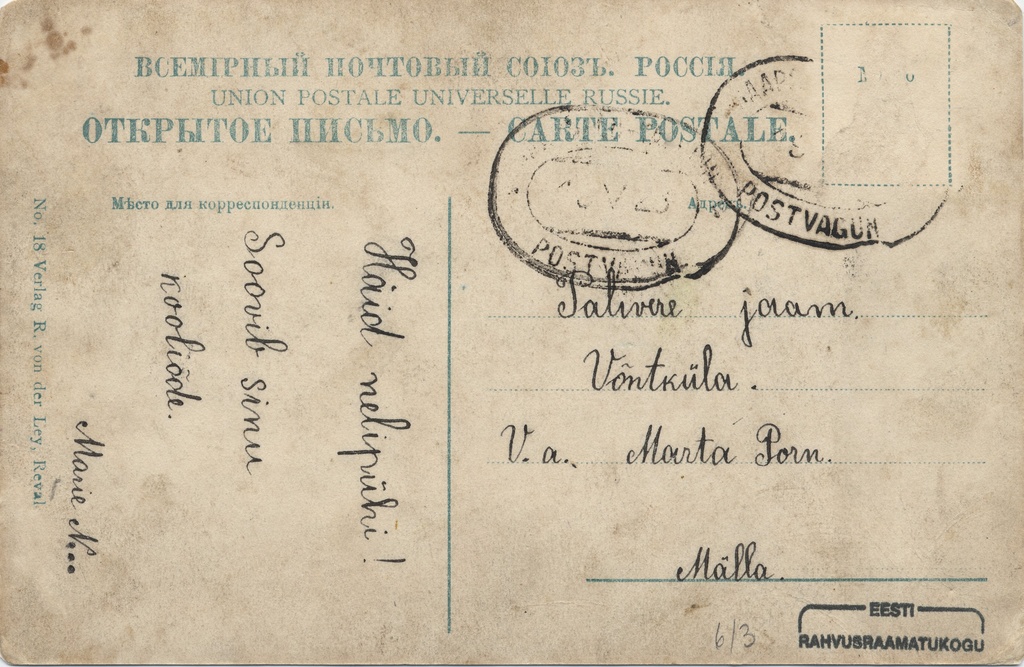 ВСЕМІРНЫЙ ПОЧТОВЫЙ СОЮЗЪ. РОССІЯ
UNION POSTALE UNIVERSELLE RUSSIE.
ОТКРЫТОЕ ПИСЬМО. — CARTE POSTALE.
Мѣсто для корреспонденціи.
No. 18 Verlag R. von der Ley, Reval
Häid nelipühi!
Soovib Sinu
kooliõde.
Marie N....
POSTVAGUN
POSTVAGUN
Salivere jaam.
Võntküla.
V. a. Marta Porn.
Mälla.
6/3
EESTI
RAHVUSRAAMATUKOGU